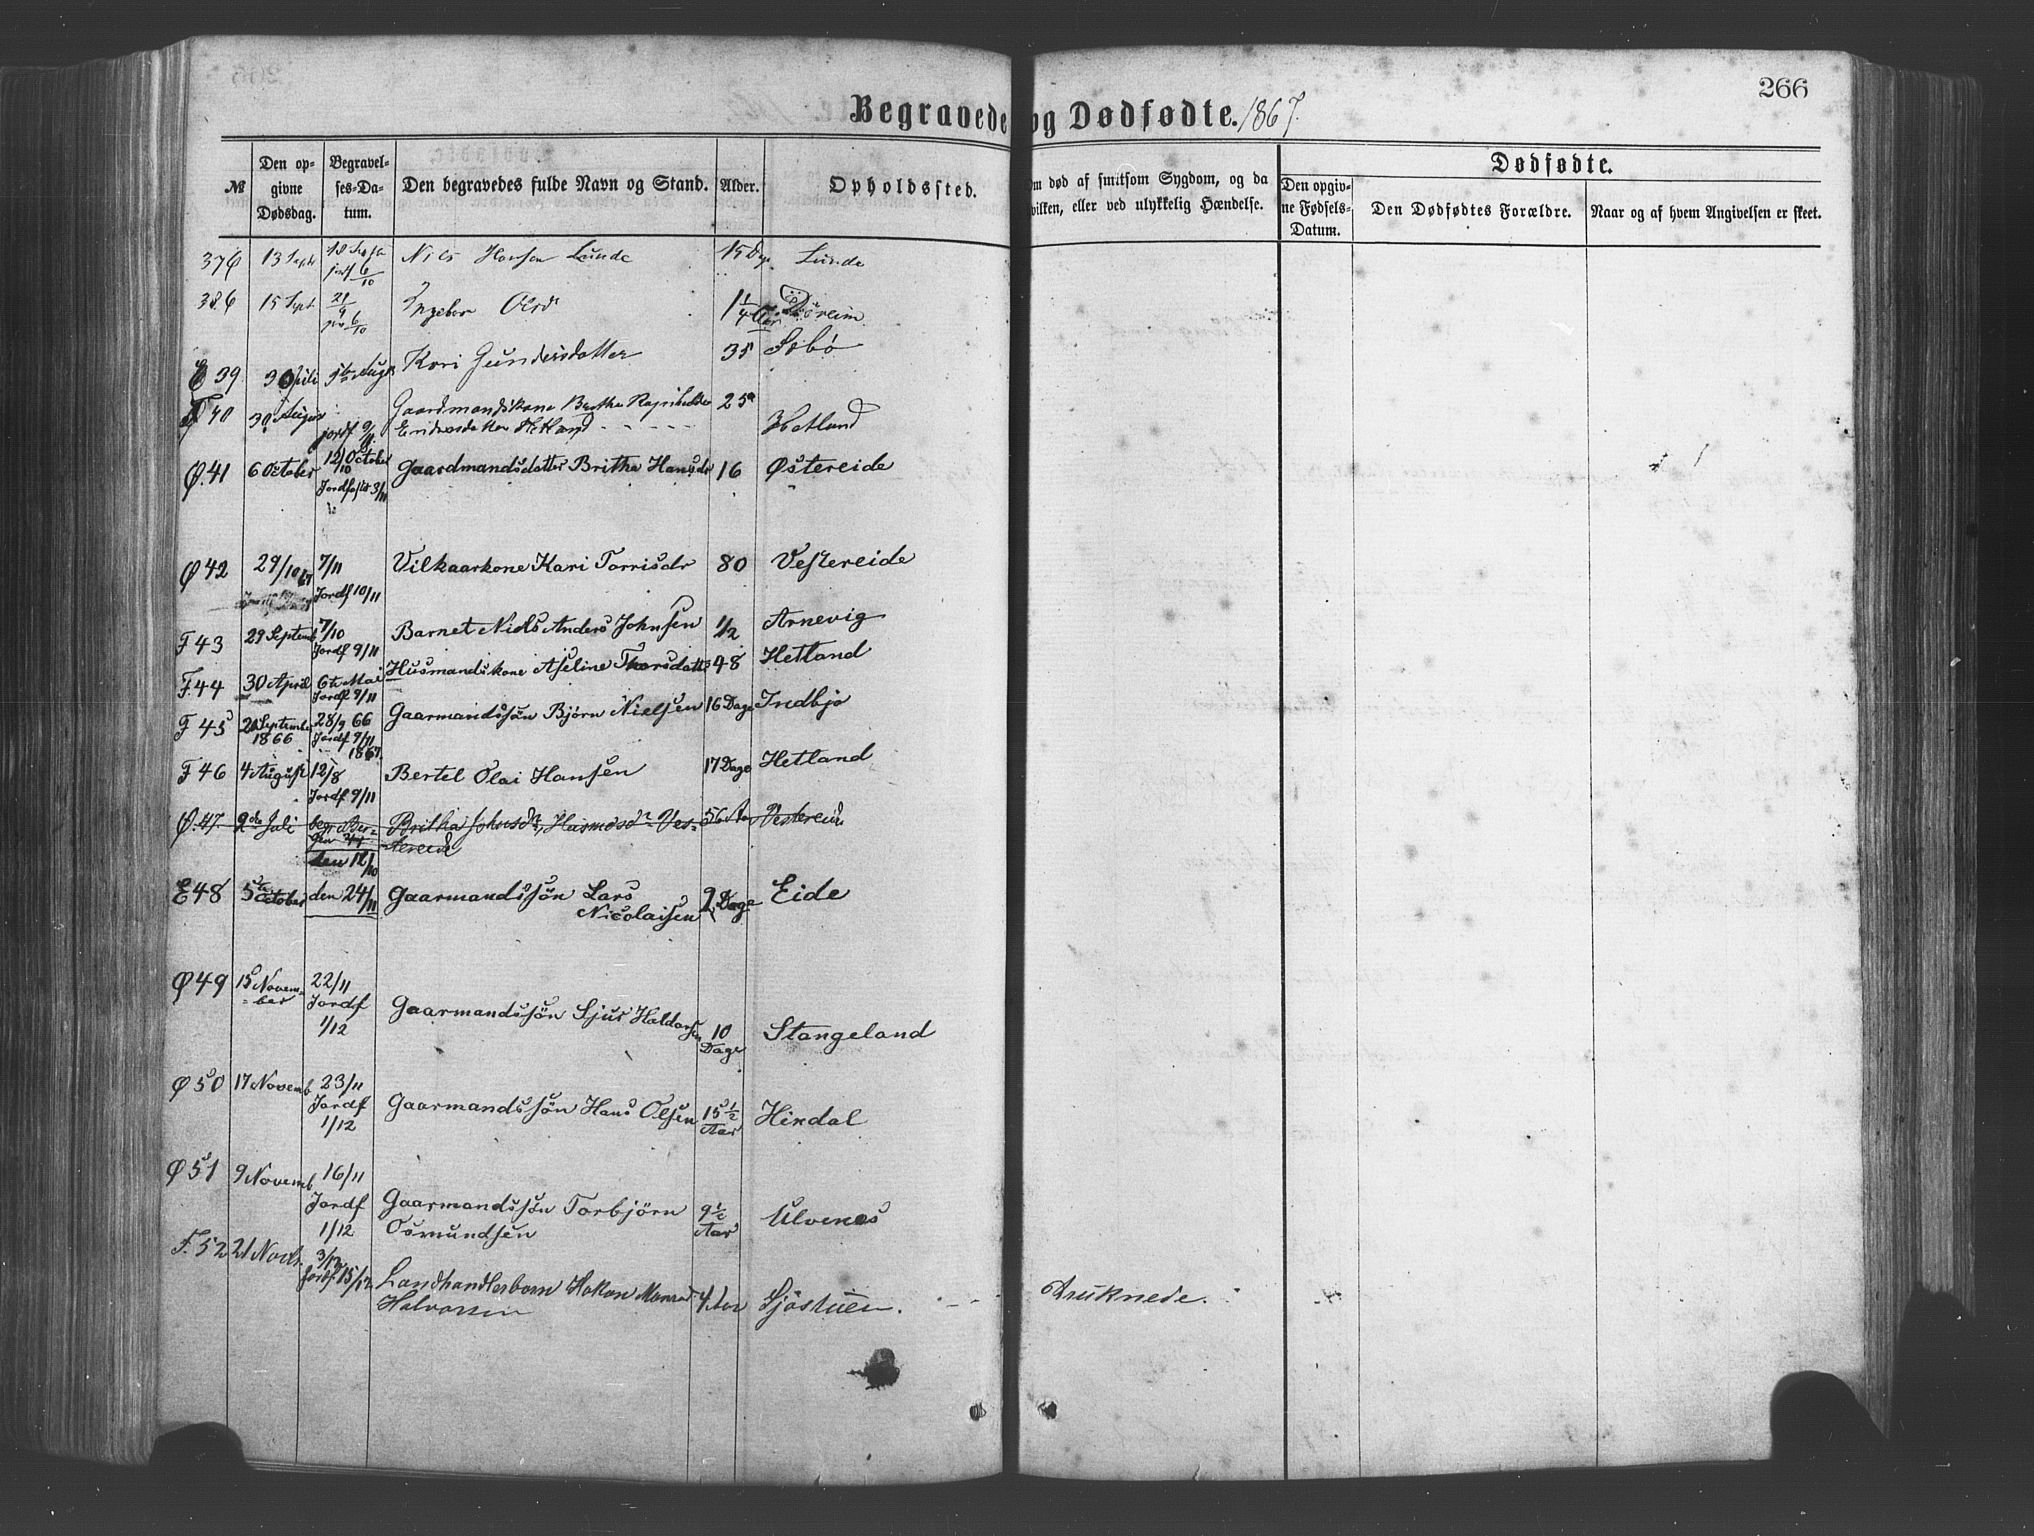 266
Begravede og Dødfødte. 1867.
№
Den opgivne Dødsdag.
Begravelses-Datum.
Den begravedes fulde Navn og Stand.
Alder.
Opholdssted.
Om død af smitsom Sygdom, og da
hvilken, eller ved ulykkelig Hændelse.
Dødfødte.
Den opgivne Fødsels-Datum.
Den Dødfødtes Forældre.
Naar og af hvem Angivelsen er skeet.
376 13 Sept 18 Sept jordf 6/10 Nils Hansen Lunde 15 Dge Lunde
386 15 Sept. 21/9 6/10 Ingebor Olsd 1 1/4 Aar
E 39 Kari Gundersdatter 35 Sæbø
F 40 30 August jordf 9/11 Gaardmandskone Brithe 25
Endresdatter Hetland - - - - - Hetland
Ø.41 6 October 12 October Jordfæstet 3/11 Gaardmandsdatter Britha Hansdr 16 Østereide
Ø 42 29/10 67 7/11 Jordf 10/11 Vilkaarkone Kari Torrisdr 80 Vestereide
F 43 29 Septemb 7/10 Jordf 9/11 Barnet Niels Anders Johnsen 1/2 Arnevig
F.44 30 April 6te Mai Jordf 9/11 Husmandskone Aseline Thorsdatte 48 Hetland
F 45 Septembr 1866 28/9 66 Jordf 9/11 1867. Gaarmandssön Björn Nielsen 16 Dage Indbjo
F 46 4 August 12/8 Jordf 9/11 Bertel Olai Hansen 17 Dage Hetland
Ø.47. 2den Juli Britha Johnsdr, Husmdsdr Ves- 56 Aar Vestereide
tereide
den 12/10
E 48 5te October den 24/11 Gaarmandssön Lars
Nicolaisen 2 Dage Eide
Ø 49 15 Novem-
ber 22/11 Jordf 1/12 Gaarmandssön Sjur Haldorsen 10 Dage Stangeland
Ø 50 17 Novemb 23/11 Jordf 1/12 Gaarmandssön Hans Olsen 15 1/2 Aar Hindal
Ø 51 9 Novemb 16/11 Jordf 1/12 Gaarmandssön Torbjörn
Osmundsen 9 1/2 Aar Ulvenes
F. 52 21 Novbr. 3/12 Jordf 15/12 Landhandlerbarn Hakon Monrad
Halvorsen 4 Aar Sjöstuen. Druknede.